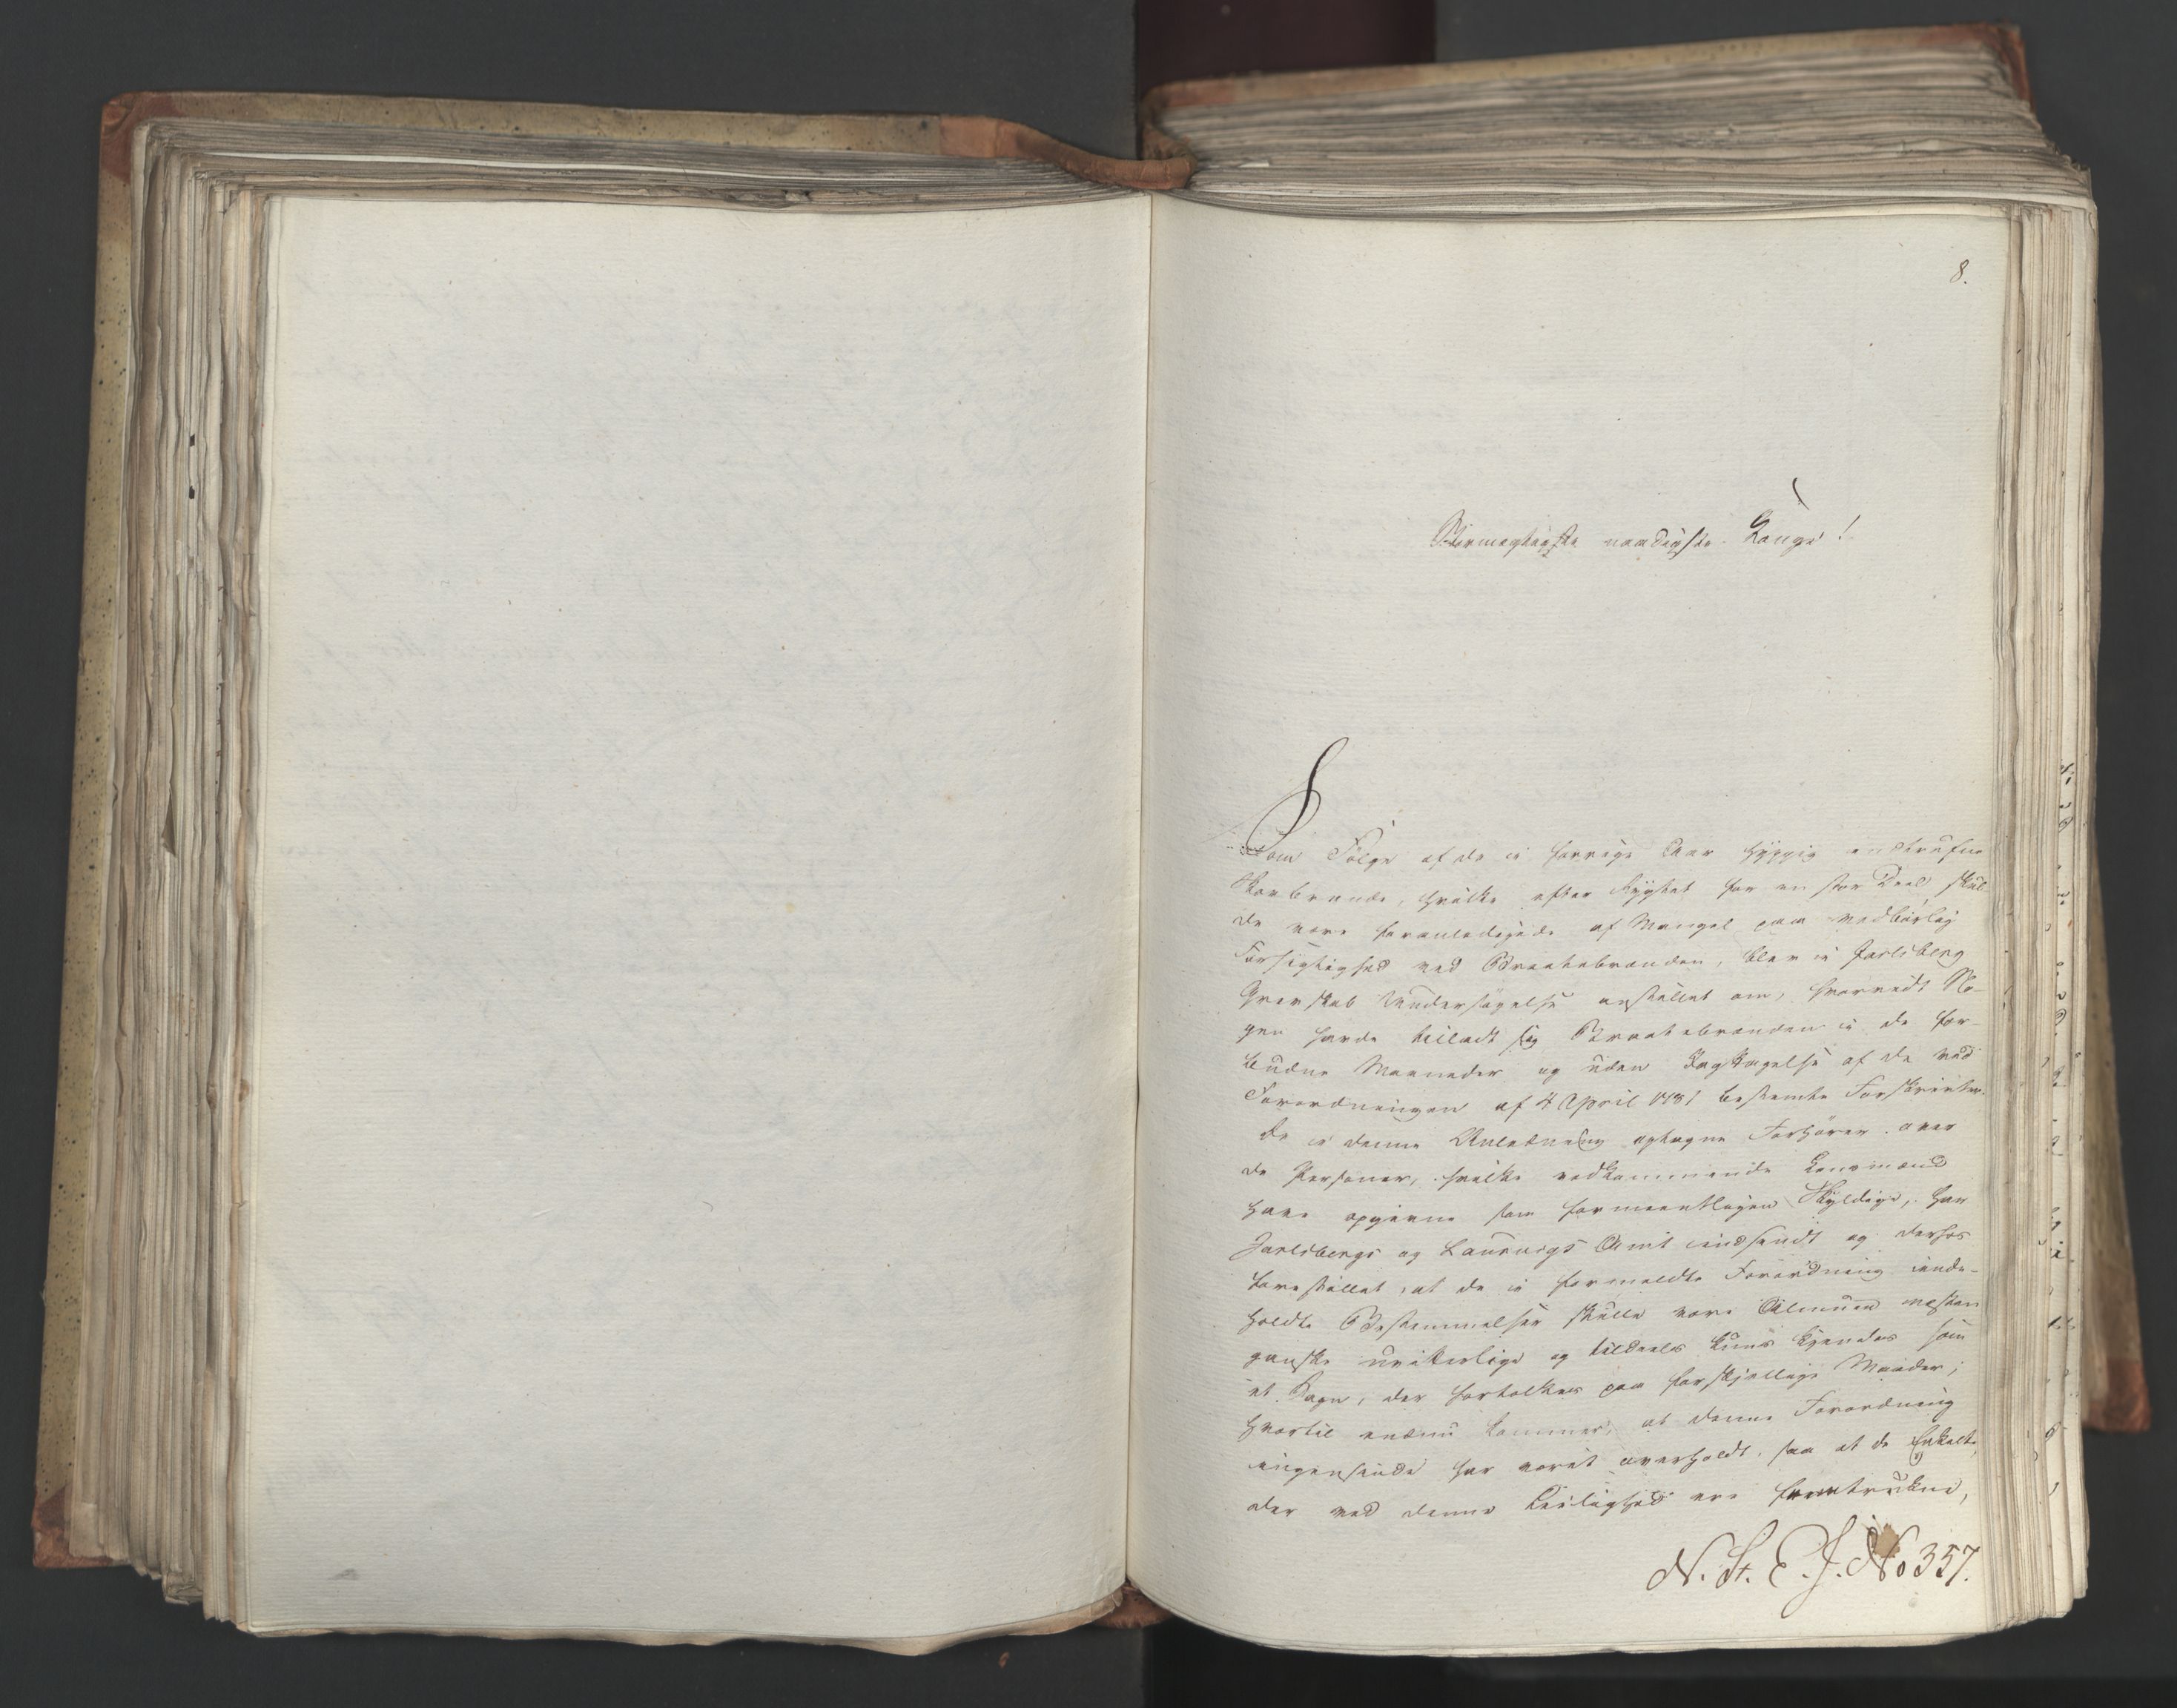 8.
Stormægtigste naadigste Konge!
Som Følge af de i forrige Aar hyppig indtrufne
Skovbrande, hvilke efter Rygtet for en stor Deel skul-
de være foranledigede af Mangel paa vedbørlig
Forsigtighed ved Braatebrænden, blev i Jarlsberg
Grevskab Undersøgelse anstillet om, hvorvidt No-
gen havde tilladt sig Braatebrænden i de for-
budne Maaneder og uden Iagttagelse af de ved
Forordningen af 4 April 1781 bestemte Forskrivter.
De i denne Anledning optagne Forhører over
de Personer, hvilke vedkommende Lensmænd
have opgivne som formeentligen Skyldige, har
Jarlsbergs og Laurvigs Amt indsendt og derhos
forestillet, at de i formeldte Forordning inde-
holdte Bestemmelser skulle være Almuen næsten
ganske uvitterlige og tildeels kuns kjendes som
et Sagn, der fortolkes paa forskjellige Maader;
hvortil endnu kommer, at denne Forordning
ingensinde har været overholdt, saa at de Enkelte,
der ved denne Leilighed ere fremtrukne,
N. St. E. J. No 357.